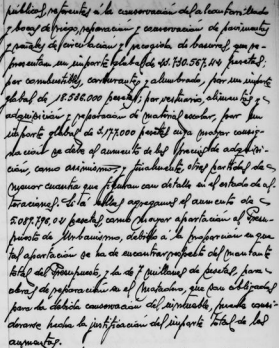 públicas, referentes a la conservación del alcantarillado
y bocas de riego, reparación y conservación de pavimentos
y señales de circulación y recogida de basuras, que re-
presentan un importe global de 43.730.567,44 pesetas;
por combustibles, carburantes y alumbrado, por un importe
global de 18.586.000 pesetas; por vestuario, alimentos y
adquisición y reposición de material escolar, por un
importe global de 5.177.000 pesetas cuya mayor consig-
nación se debe al aumento de los precios de adquisi-
ción, como asimismo, y finalmente, otras partidas de
menor cuantía que figuran con detalle en el estado de al-
teraciones. Si a ellas agregamos el aumento de
5.087.798,04 pesetas como mayor aportación al Presu-
puesto de Urbanismo, debido a la proporción en que
tal aportación se ha de encontrar respecto del montante
total del Presupuesto, y la de 7 millones de pesetas, para
obras de reparación en el Matadero, que son obligadas
para la debida conservación del inmueble, puede consi-
derarse hecha la justificación del importe total de los
aumentos.